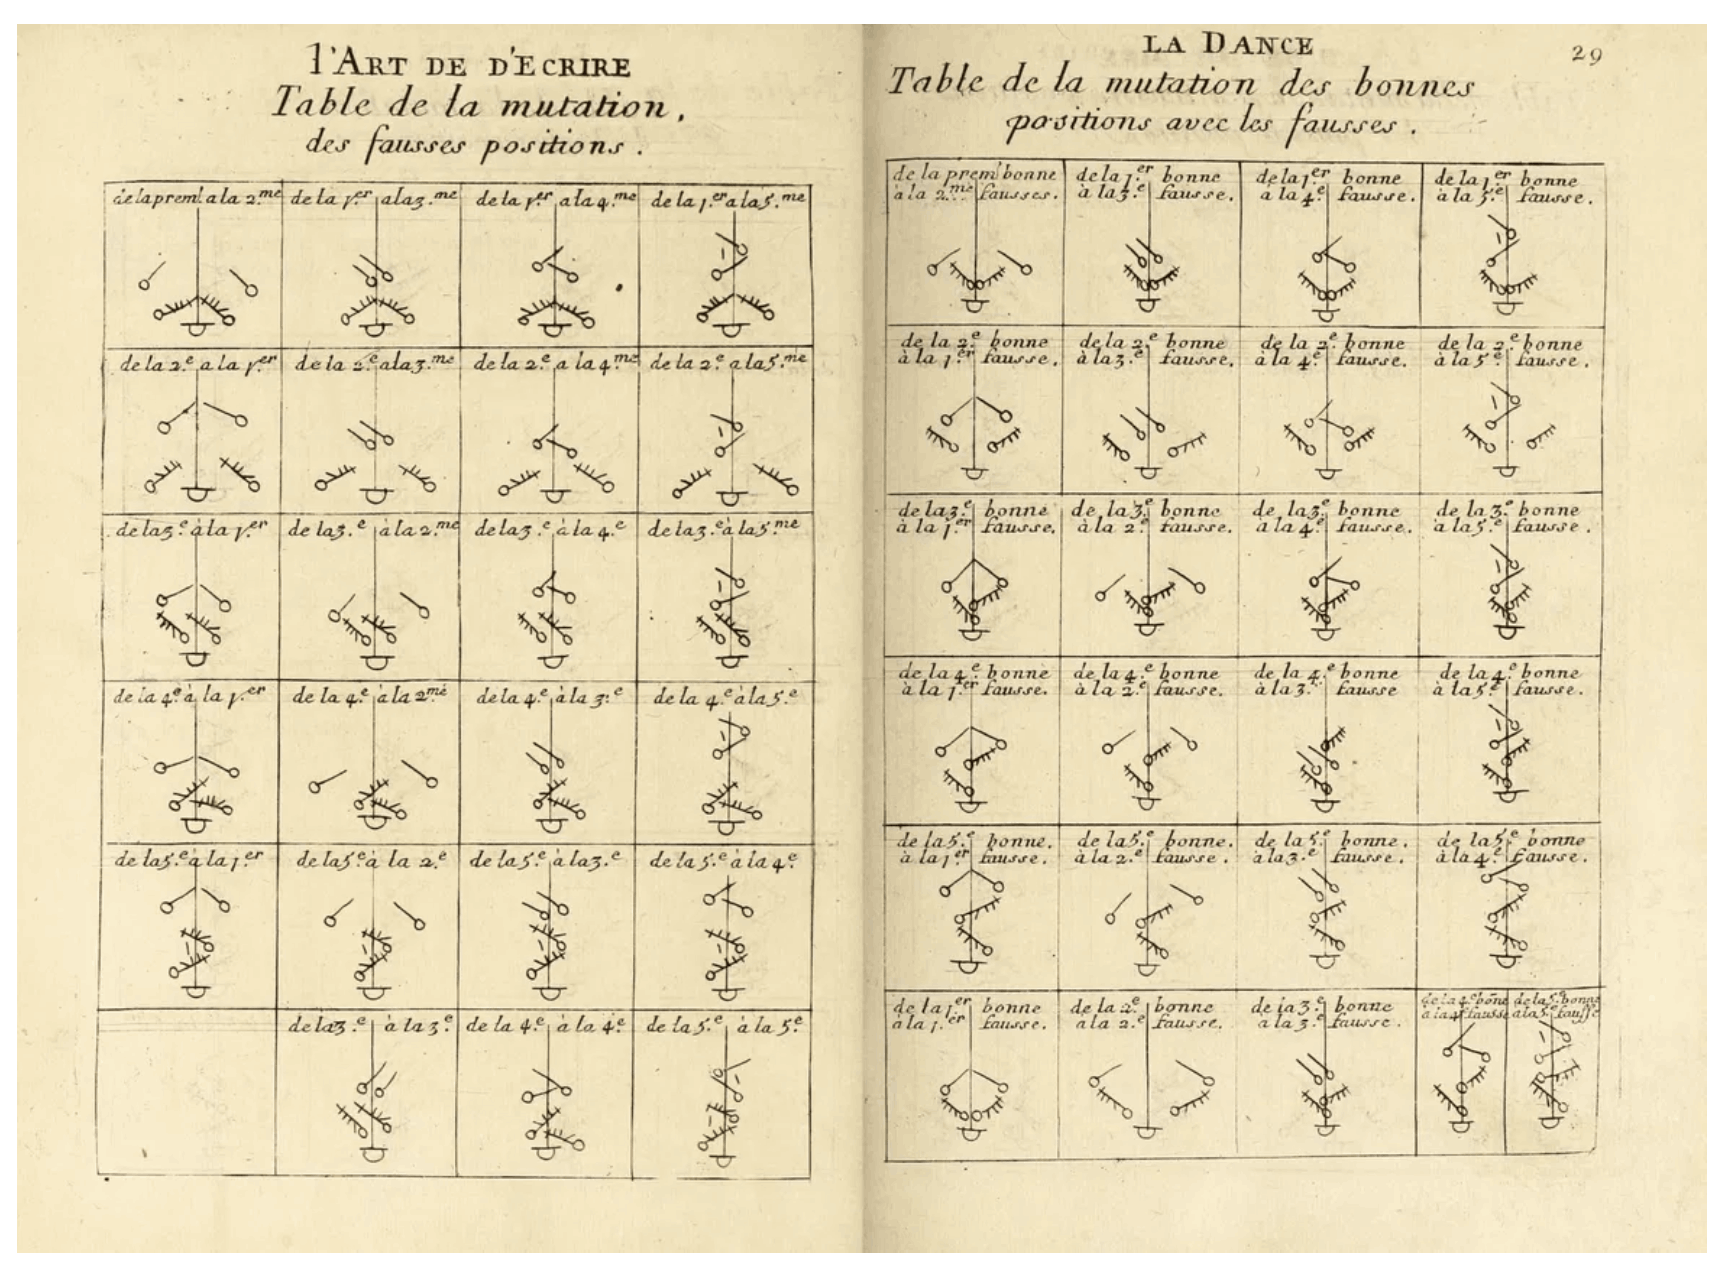 l'ART DE D'ECRIRE
Table de la mutation,
des fausses positions.
de la prem. a la 2.me
de la 1.er a la 3.me
de la 1.er a la 4.me
de la 1.er a la 5.me
de la 2.e a la 1.er
de la 2.e a la 3.me
de la 2.e a la 4.me
de la 2.e a la 5.me
de la 3.e à la 1.er
de la 3.e à la 2.me
de la 3.e à la 4.e
de la 3.e à la 5.me
de la 4.e à la 1.er
de la 4.e à la 2.me
de la 4.e à la 3.e
de la 4.e à la 5.e
de la 5.e à la 1.er
de la 5.e à la 2.e
de la 5.e à la 3.e
de la 5.e à la 4.e
de la 3.e à la 3.e
de la 4.e à la 4.e
de la 5.e à la 5.e
LA DANCE
29
Table de la mutation des bonnes
positions avec les fausses.
de la prem. bonne
à la 2.me fausses.
de la 1.er bonne
à la 3.e fausse.
de la 1.er bonne
à la 4.e fausse.
de la 1.er bonne
à la 5.e fausse.
de la 2.e bonne
à la 1.er fausse.
de la 2.e bonne
à la 3.e fausse.
de la 2.e bonne
à la 4.e fausse.
de la 2.e bonne
à la 5.e fausse.
de la 3.e bonne
à la 1.er fausse.
de la 3.e bonne
à la 2.e fausse.
de la 3.e bonne
à la 4.e fausse.
de la 3.e bonne
à la 5.e fausse.
de la 4.e bonne
à la 1.er fausse.
de la 4.e bonne
à la 2.e fausse.
de la 4.e bonne
à la 3.e fausse
de la 4.e bonne
à la 5.e fausse.
de la 5.e bonne.
à la 1.er fausse.
de la 5.e bonne.
à la 2.e fausse.
de la 5.e bonne.
à la 3.e fausse.
de la 5.e bonne
à la 4.e fausse.
de la 1.er bonne
a la 1.er fausse.
de la 2.e bonne
a la 2.e fausse.
de la 3.e bonne
a la 3.e fausse.
de la 4.e bone
a la 4.e fausse
de la 5.e bonne
a la 5.e fausse